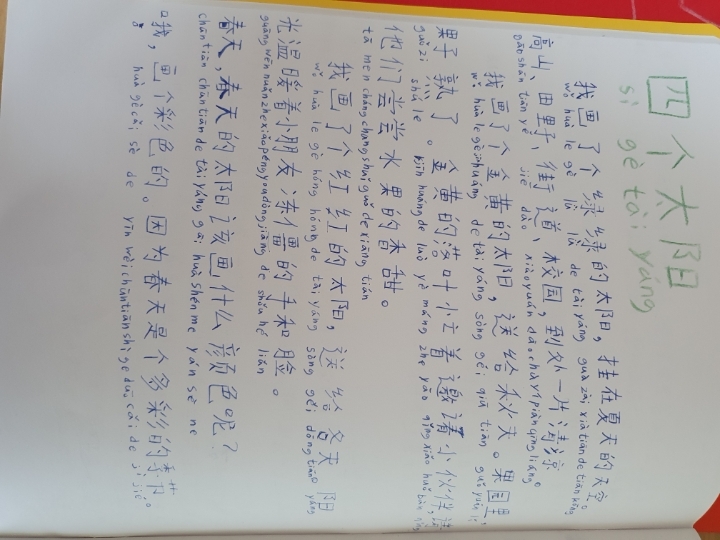 四个太阳
sì gè tài yáng
我画了个绿绿的太阳，挂在夏天的天空。
wǒ huà le gè lǜ lǜ de tài yáng guà zài xià tiān de tiān kōng
高山、田野、街道、校园，到处一片清凉。
gāo shān tián yě jiē dào xiào yuán dào chù yí piàn qīng liáng
我画了个金黄的太阳，送给秋天。果园里，
wǒ huà le gè jīn huáng de tài yáng sòng gěi qiū tiān guǒ yuán lǐ
果子熟了。金黄的落叶忙着邀请小伙伴，请
guǒ zi shú le jīn huáng de luò yè máng zhe yāo qǐng xiǎo huǒ bàn qǐng
他们尝尝水果的香甜。
tā men cháng chang shuǐ guǒ de xiāng tián
我画了个红红的太阳，送给冬天。阳
wǒ huà le gè hóng hóng de tài yáng sòng gěi dōng tiān yáng
光温暖着小朋友冻僵的手和脸。
guāng wēn nuǎn zhe xiǎo péng you dòng jiāng de shǒu hé liǎn
春天，春天的太阳该画什么颜色呢？
chūn tiān, chūn tiān de tài yáng gāi huà shén me yán sè ne
哦，画个彩色的。因为春天是个多彩的季节。
huà gè cǎi sè de yīn wèi chūn tiān shì ge duō cǎi de jì jié